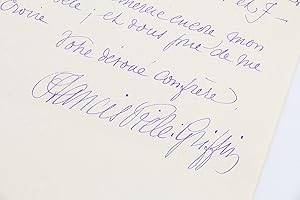 mercie encore mon
et vous prie de me
croire
Votre dévoué confrère,
Francis Vielé-Griffin